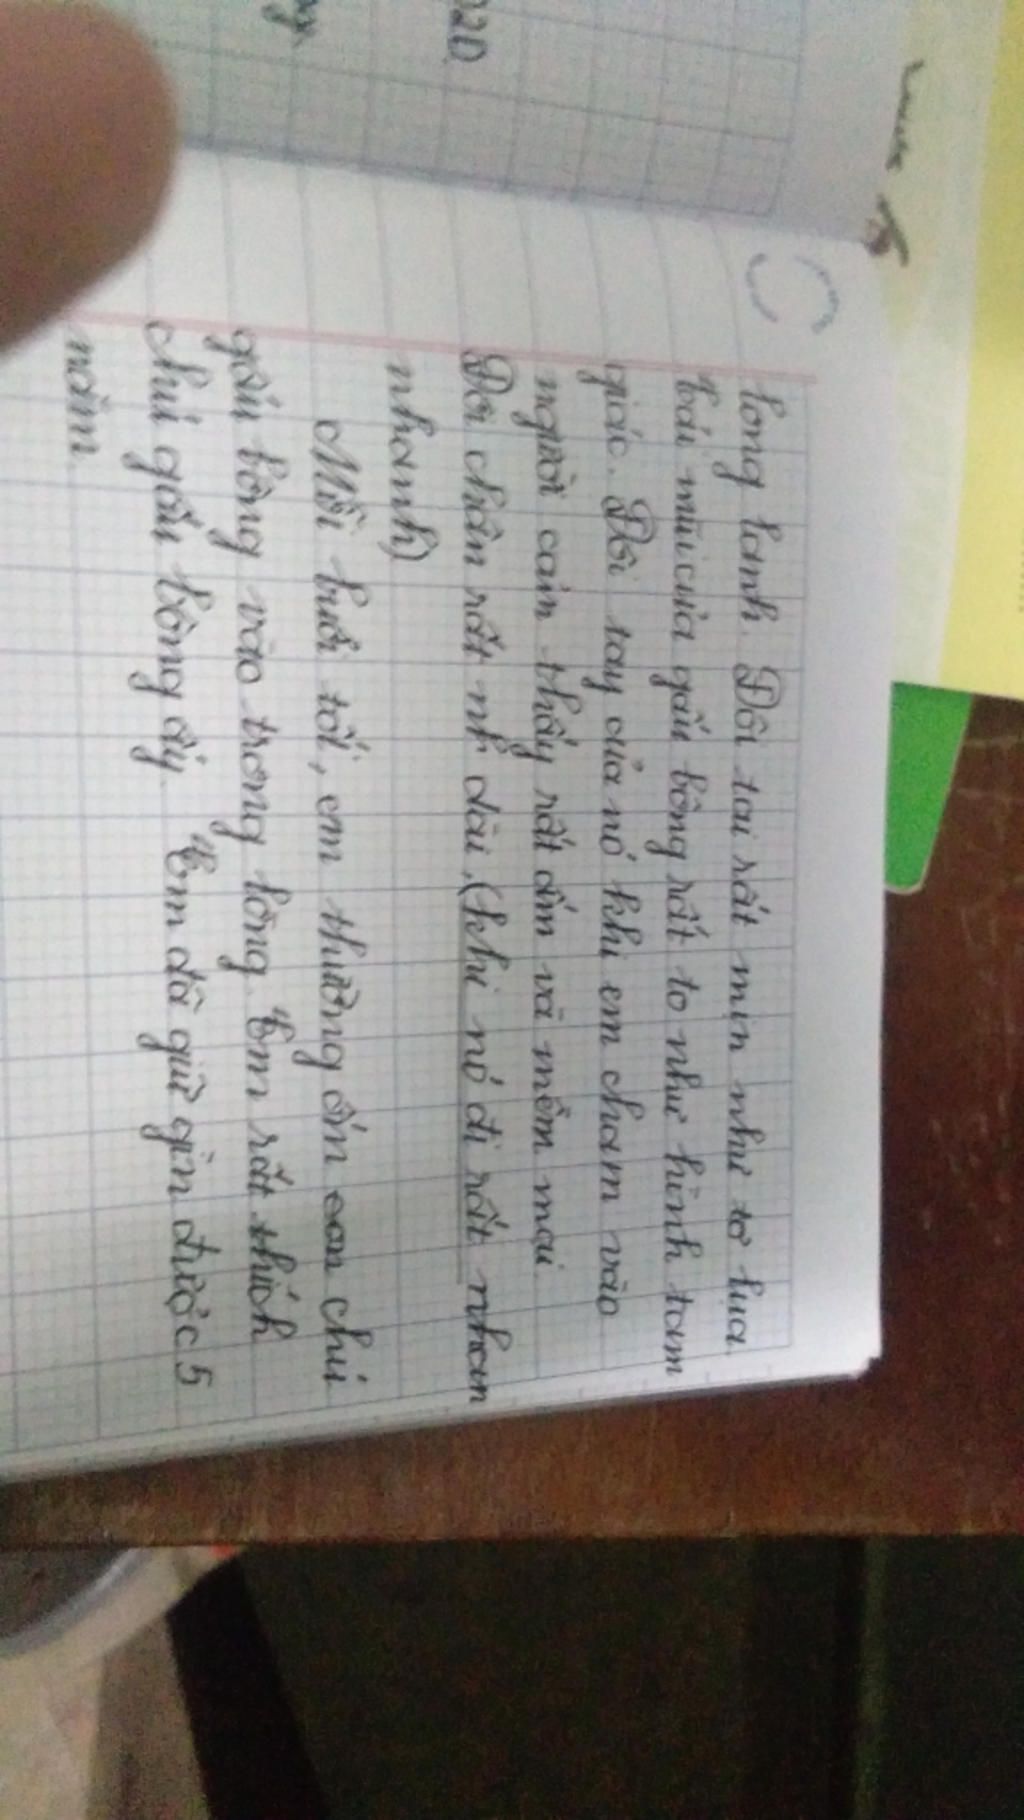 long lanh. Đôi tai rất mịn như tơ lụa.
Cái mũi của gấu bông rất to như hình tam
giác. Đôi tay của nó khi em chạm vào
người cảm thấy rất ấm và mềm mại.
Đôi chân rất nh dài, (khi nó đi rất nhan
nhanh)
Mỗi buổi tối, em thường ôm con chú
gấu bông vào trong lòng. Em rất thích
chú gấu bông ấy. Em đã giữ gìn được 5
năm.